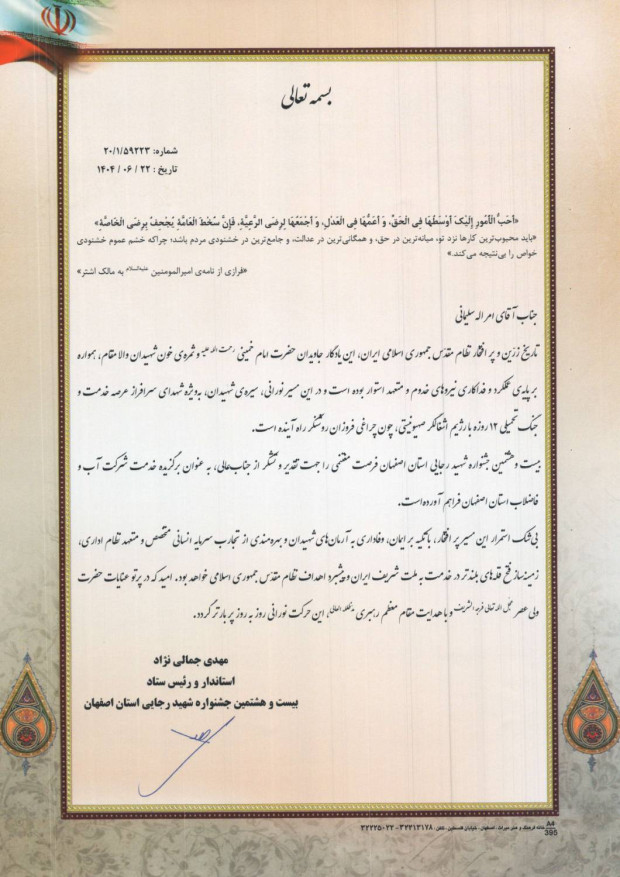 بسمه تعالی
شماره: ۲۰/۱/۵۹۲۲۳
تاریخ: ۲۲ / ۰۶ / ۱۴۰۴
«أحَبُّ الْأُمُورِ إِلَيْكَ أَوْسَطُهَا فِي الْحَقِّ، وَ أَعَمُّهَا فِي الْعَدْلِ، وَ أَجْمَعُهَا لِرِضَى الرَّعِيَّةِ، فَإِنَّ سُخْطَ الْعَامَّةِ يُجْحِفُ بِرِضَى الْخَاصَّةِ»
«باید محبوب‌ترین کارها نزد تو، میانه‌ترین در حق، و همگانی‌ترین در عدالت، و جامع‌ترین در خشنودی مردم باشد؛ چراکه خشم عموم خشنودی
خواص را بی‌نتیجه می‌کند.»
«فرازی از نامه‌ی امیرالمومنین علیه‌السلام به مالک اشتر»
جناب آقای امراله سلیمانی
تاریخ زرّین و پر افتخار نظام مقدّس جمهوری اسلامی ایران، این یادگار جاویدان حضرت امام خمینی رحمت الله علیه و ثمره‌ی خون شهیدان والا مقام، همواره
بر پایه‌ی عملکرد و فداکاری نیروهای خدوم و متعهد استوار بوده است و در این مسیر نورانی، سیره‌ی شهیدان، به‌ویژه شهدای سرافراز عرصه خدمت و
جنگ تحمیلی ۱۲ روزه با رژیم اشغالگر صهیونیستی، چون چراغی فروزان روشنگر راه آینده است.
بیست و هشتمین جشنواره شهید رجایی استان اصفهان فرصت مغتنمی را جهت تقدیر و تشکر از جناب‌عالی، به عنوان برگزیده خدمت شرکت آب و
فاضلاب استان اصفهان فراهم آورده است.
بی‌شک استمرار این مسیر پر افتخار، با تکیه بر ایمان، وفاداری به آرمان‌های شهیدان و بهره‌مندی از تجارب سرمایه انسانی متخصص و متعهد نظام اداری،
زمینه‌ساز فتح قله‌های بلندتر در خدمت به ملت شریف ایران و پیشبرد اهداف نظام مقدّس جمهوری اسلامی خواهد بود. امید که در پرتو عنایات حضرت
ولی عصر عجّل الله تعالی فرجه الشریف و با هدایت مقام معظم رهبری مدظله العالی، این حرکت نورانی روز به روز پر بارتر گردد.
مهدی جمالی نژاد
استاندار و رئیس ستاد
بیست و هشتمین جشنواره شهید رجایی استان اصفهان
A4
395
خانه فرهنگ و هنر میراث - اصفهان - خیابان فلسطین - تلفن: ۳۲۲۱۳۱۷۸ - ۳۲۲۲۵۰۲۲